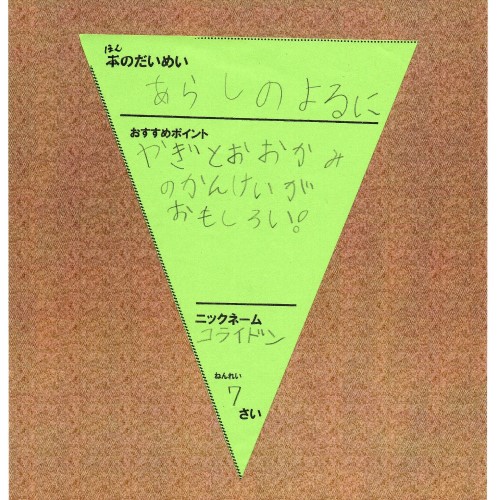 ほん
本のだいめい
あらしのよるに
おすすめポイント
やぎとおおかみ
のかんけいが
おもしろい!
ニックネーム
コライドン
ねんれい
7
さい